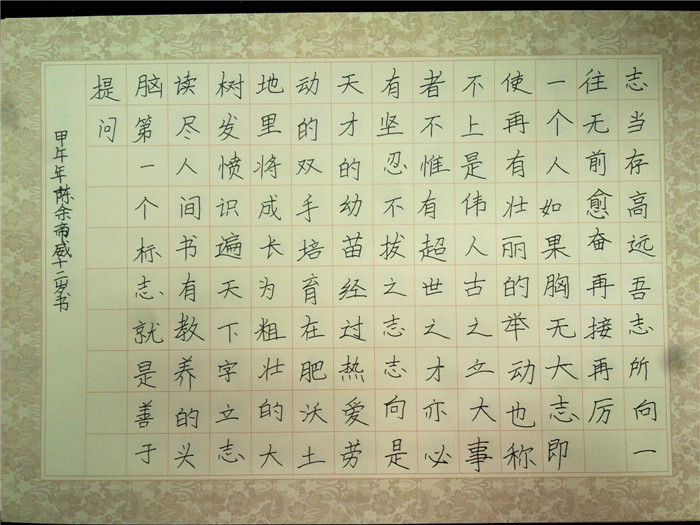 志当存高远吾志所向一
往无前愈奋再接再厉
一个人如果胸无大志即
使再有壮丽的举动也称
不上是伟人古之立大事
者不惟有超世之才亦必
有坚忍不拔之志志向是
天才的幼苗经过热爱劳
动的双手培育在肥沃土
地里将成长为粗壮的大
树发愤识遍天下字立志
读尽人间书有教养的头
脑第一个标志就是善于
提问
甲午年陈余威十二岁书